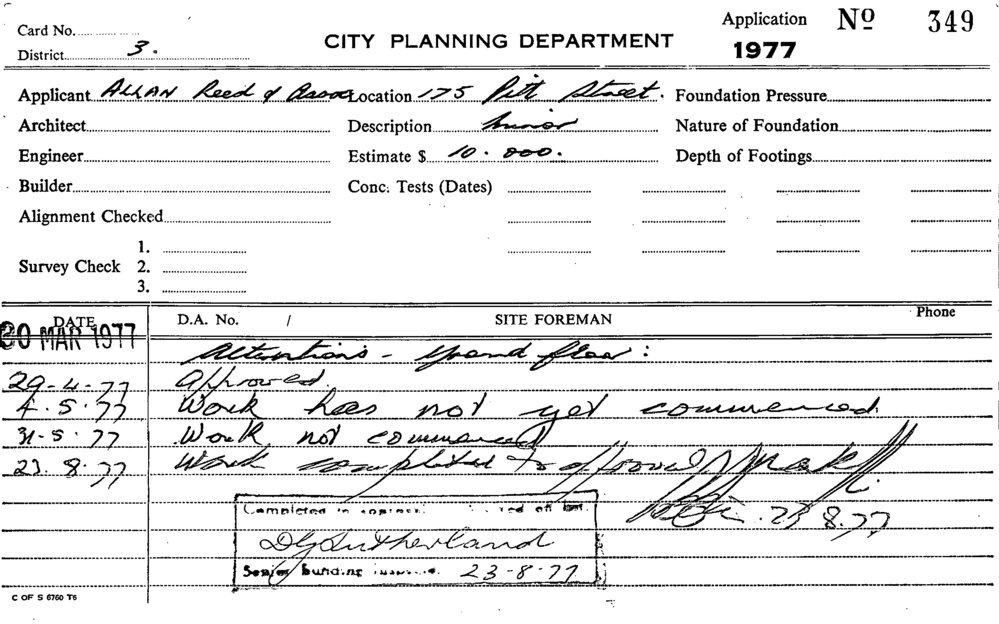 Card No.
Application No 349
District 3.
CITY PLANNING DEPARTMENT
1977
Applicant ALLAN Reed & Assoc Location 175 Pitt Street. Foundation Pressure
Architect Description Minor Nature of Foundation
Engineer Estimate $ 10.000. Depth of Footings
Builder Conc. Tests (Dates)
Alignment Checked
1.
Survey Check 2.
3.
DATE D.A. No. / SITE FOREMAN Phone
30 MAR 1977
Alterations - ground floor:
29-4-77 Approved.
4.5.77 Work has not yet commenced.
31-5.77 Work not commenced
23.8.77 Work completed to approval
23.8.77
Completed in
DG Sutherland
Senior building 23-8-77
C OF S 6760 T6